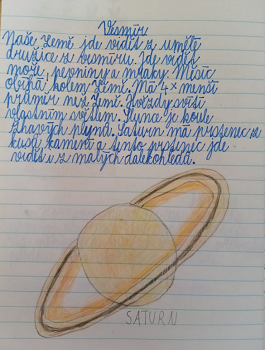 Vesmír
Naše Země jde vidět z umělé
družice z vesmíru. Jde vidět
moře, pevniny a mraky. Měsíc
obíhá kolem Země. Má 4x menší
průměr než Země. Hvězdy svítí
vlastním světlem. Slunce je koule
žhavých plynů. Saturn má prstenec z
kusů kamení a tento prstenec jde
vidět i z malých dalekohledů.
SATURN